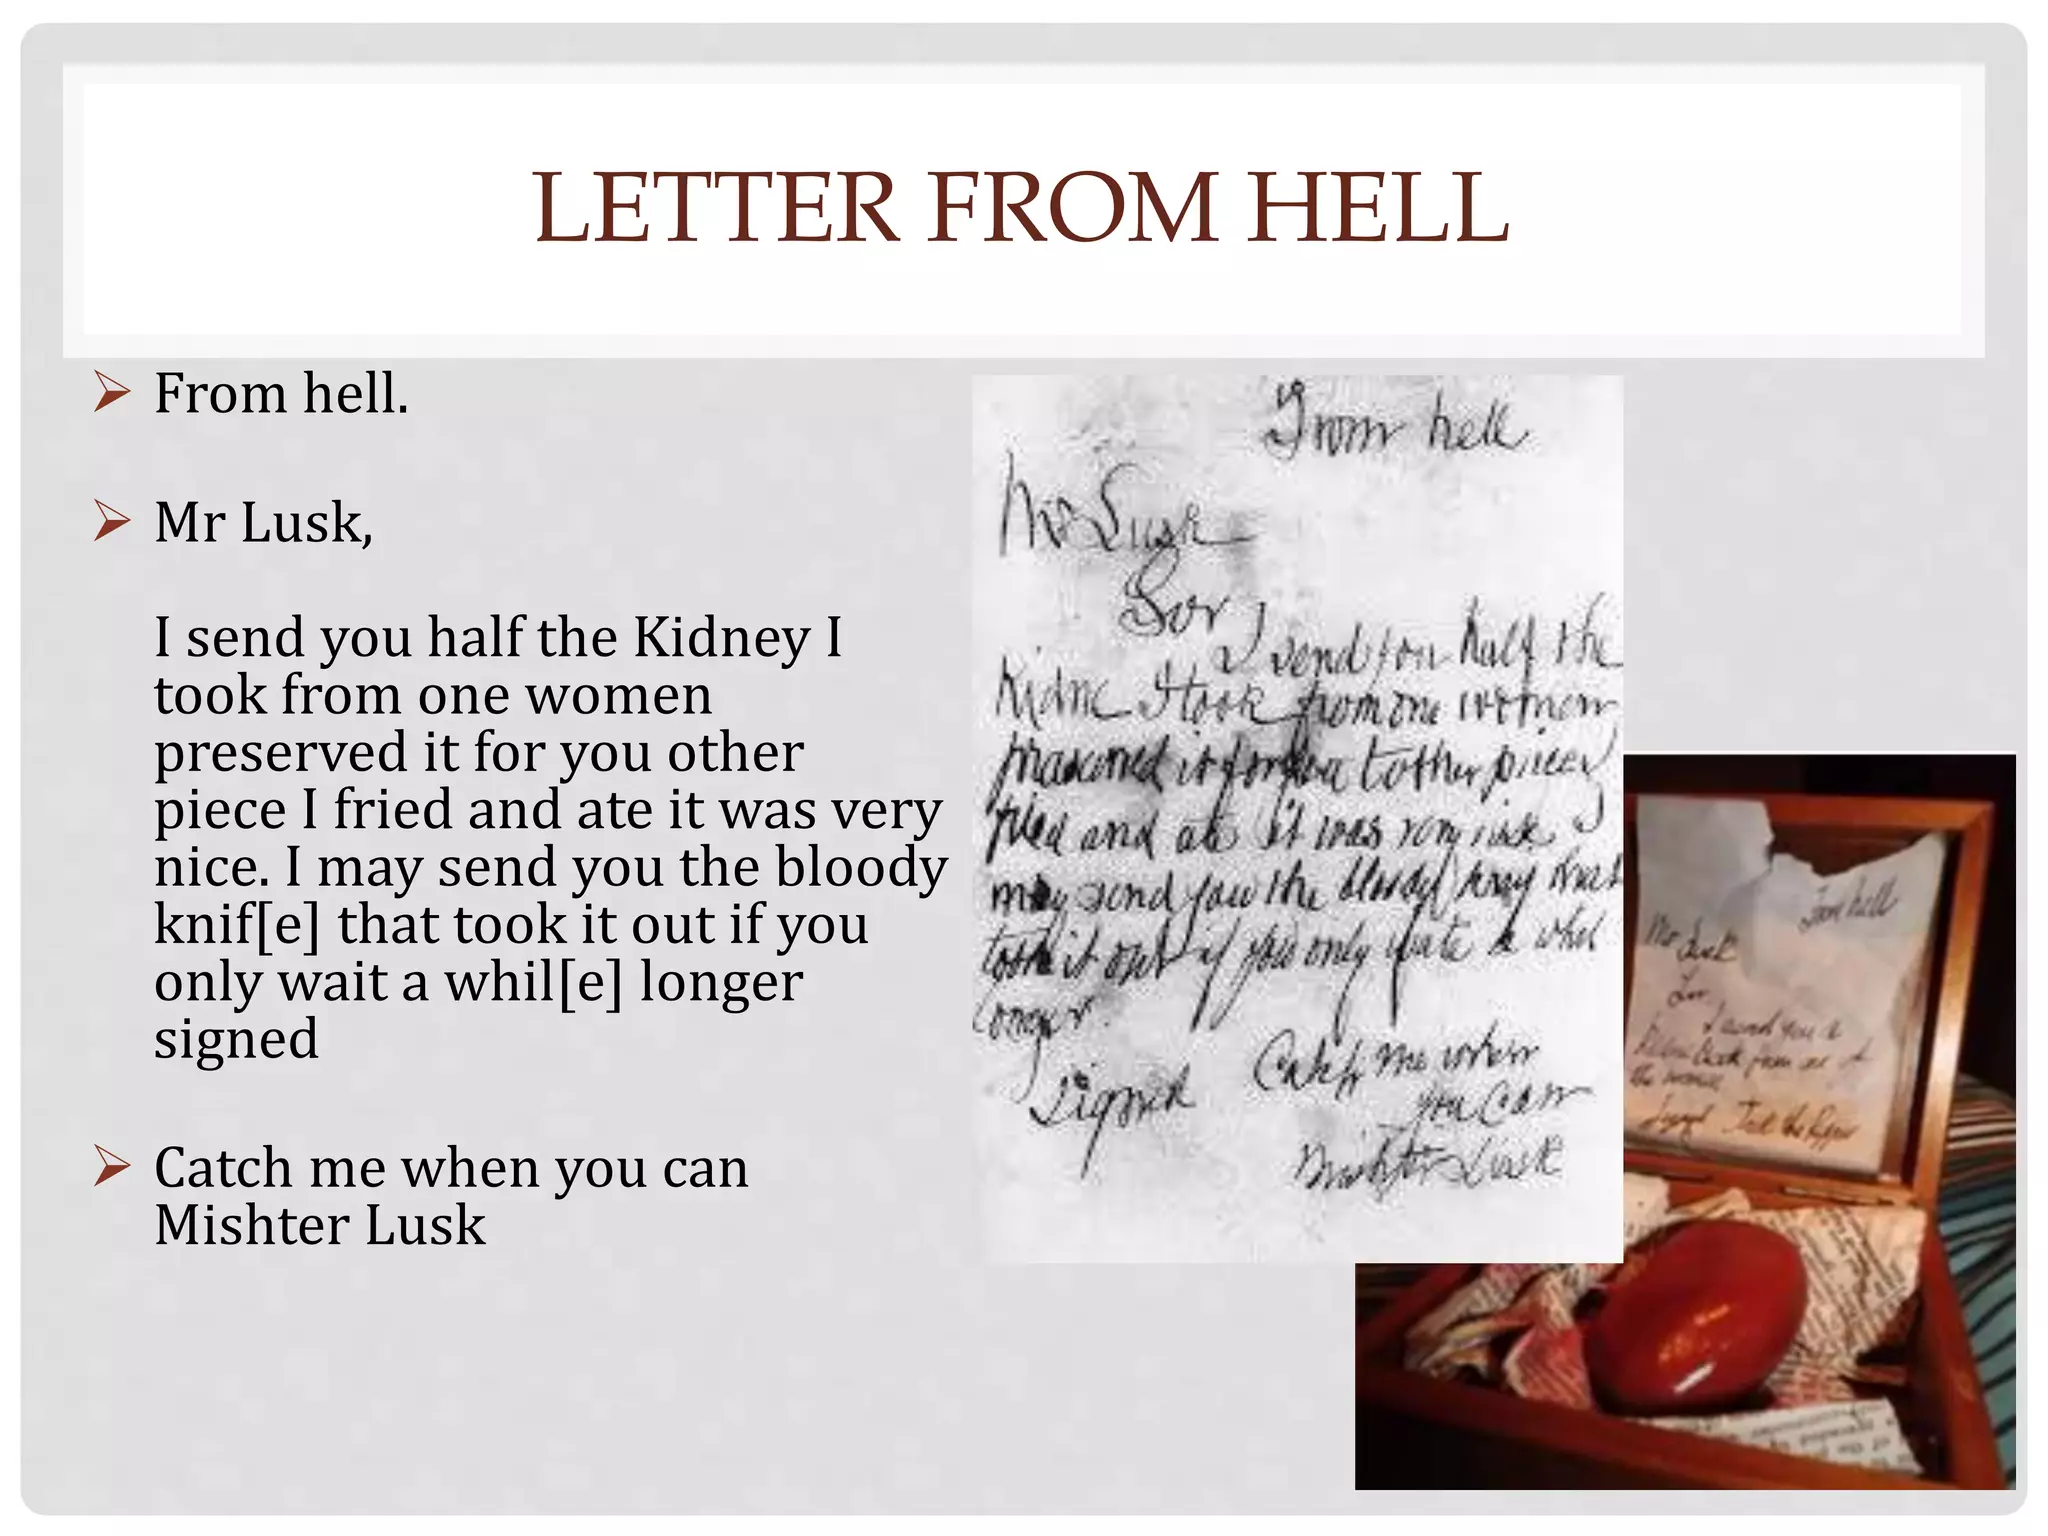 LETTER FROM HELL
From hell.
Mr Lusk,
I send you half the Kidney I
took from one women
preserved it for you other
piece I fried and ate it was very
nice. I may send you the bloody
knif[e] that took it out if you
only wait a whil[e] longer
signed
Catch me when you can
Mishter Lusk
From hell
Mr Lusk
Sor
I send you half the
Kidne I took from one women
prasarved it for you tother piece I
fried and ate it was very nise I
may send you the bloody knif that
took it out if you only wate a whil
longer.
signed
Catch me when
you Can
Mishter Lusk
From hell
Mr Lusk
Sor
I send you a
took from one of
the
Signed Jack the Ripper